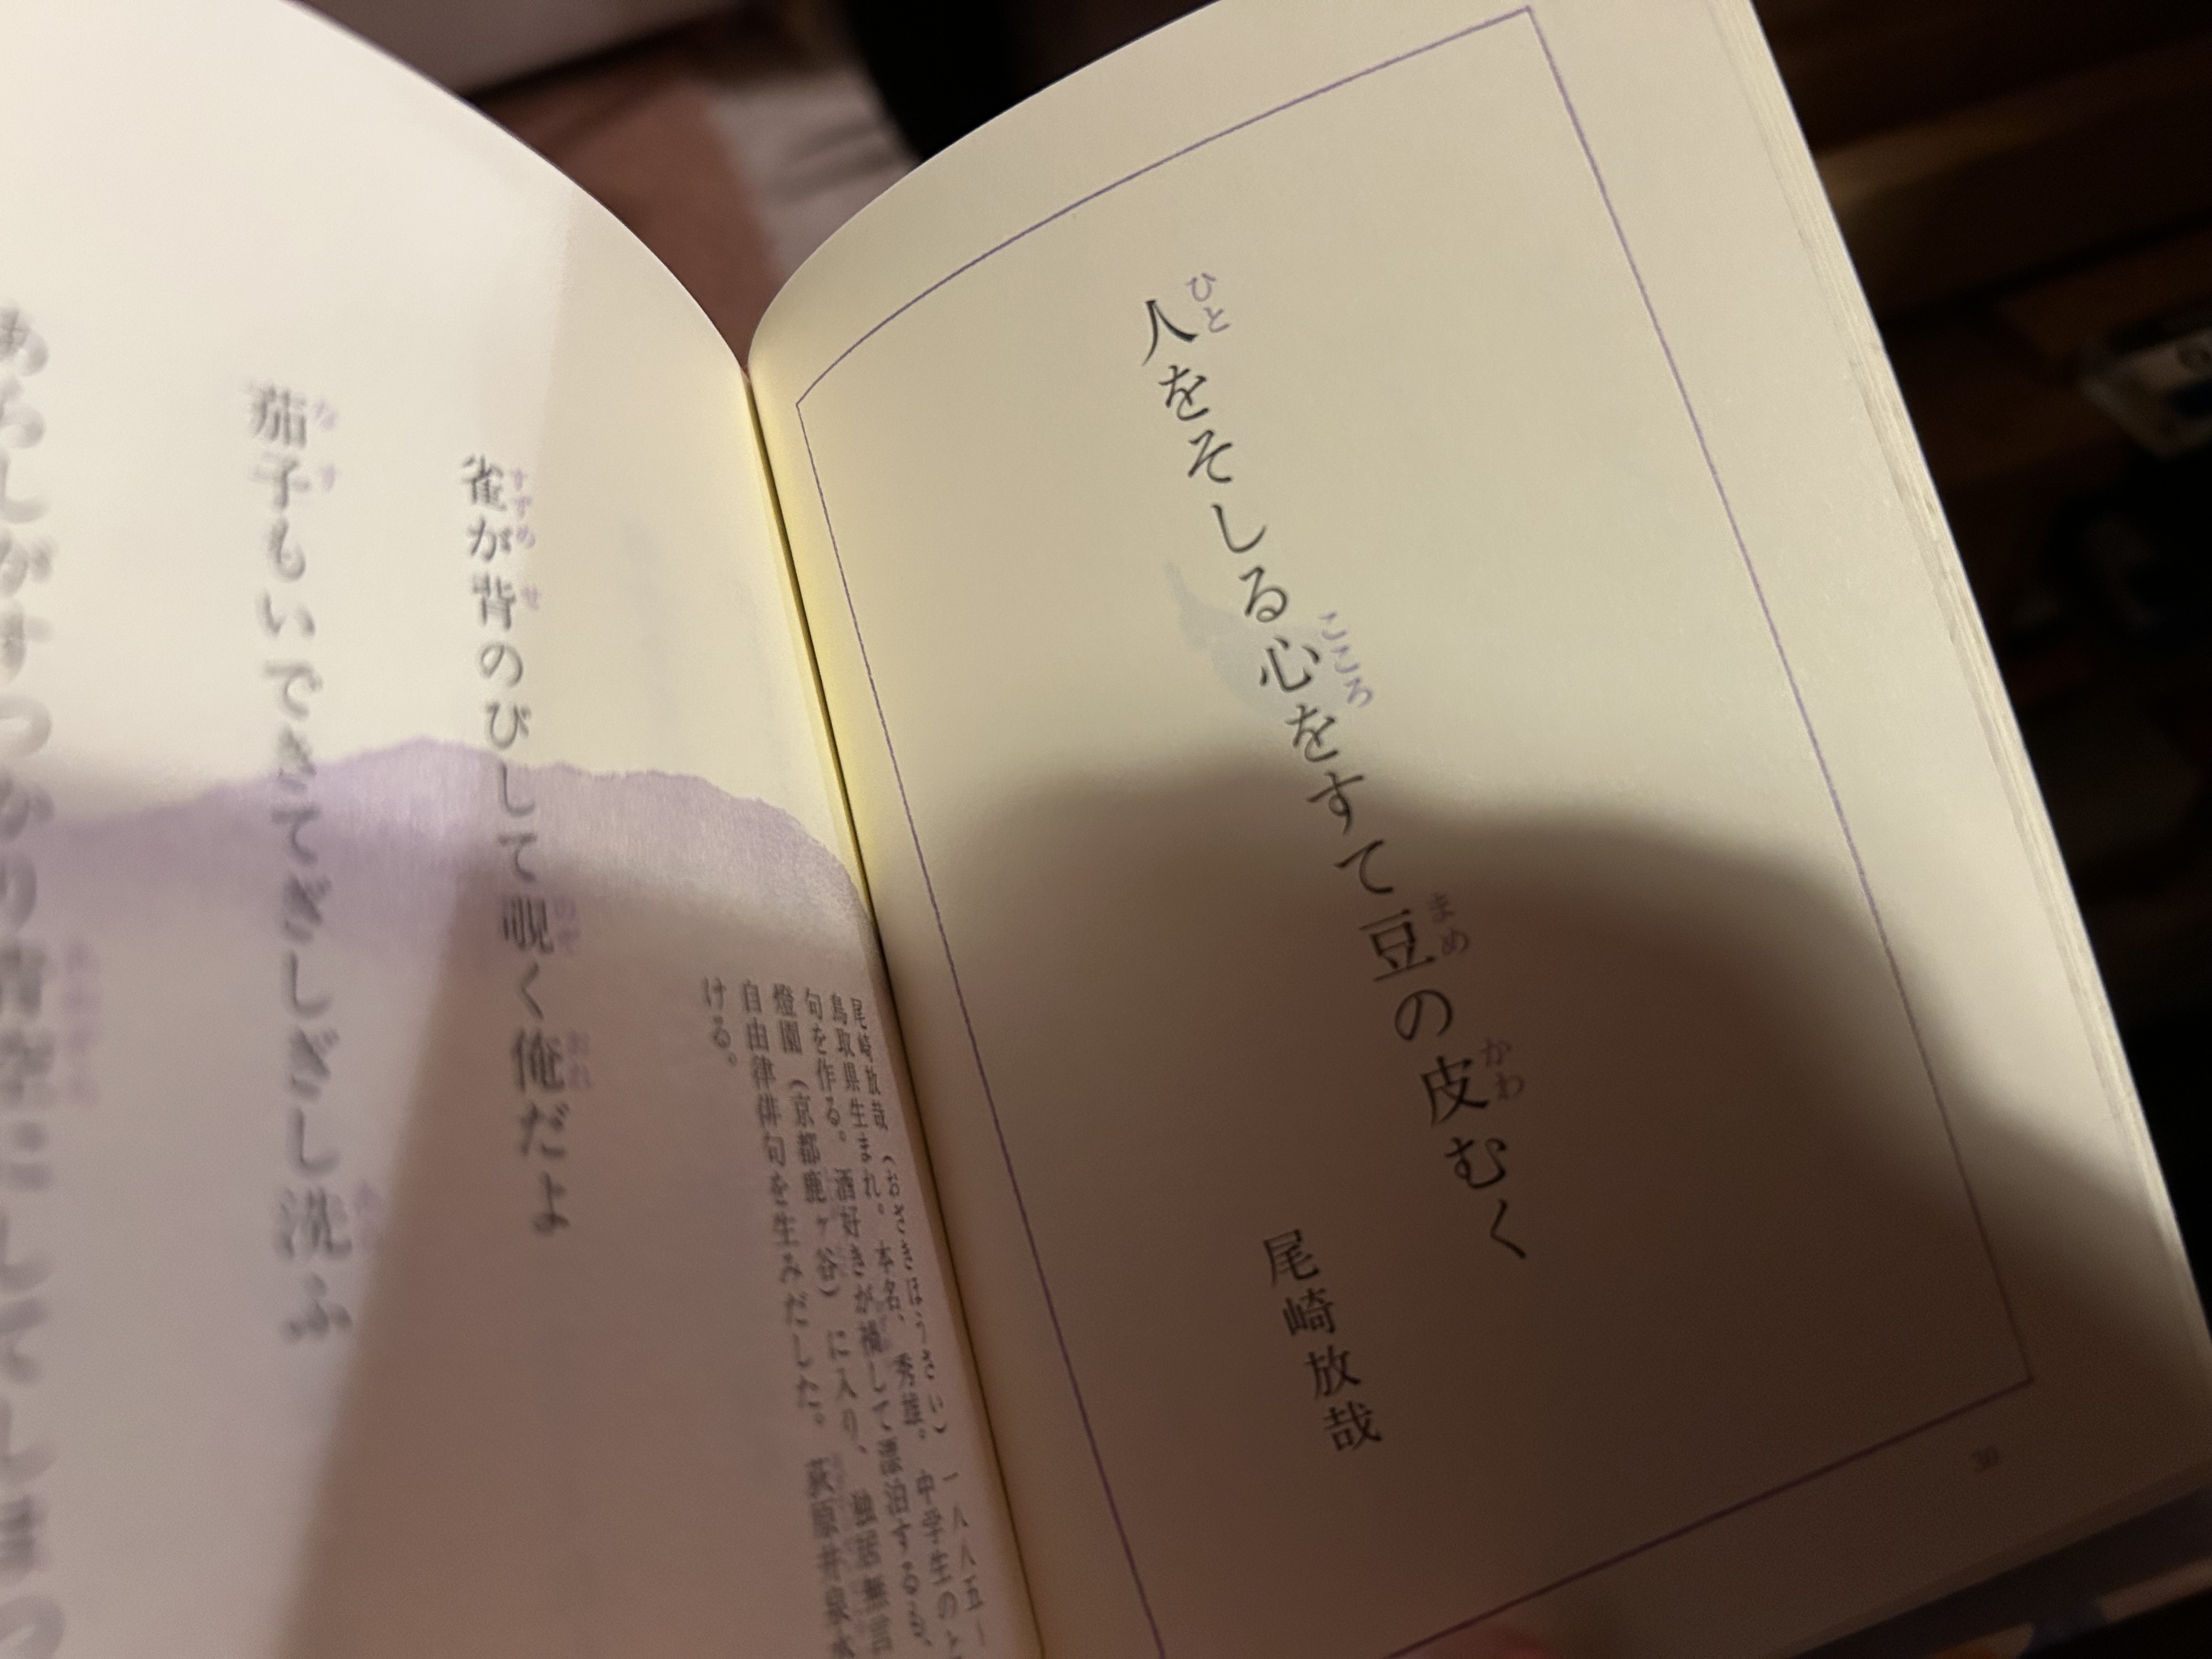 人をそしる心をすて豆の皮むく
尾崎放哉
30
尾崎放哉（おさきほうさい）一八八五ー
鳥取県生まれ。本名、秀雄。中学生の
句を作る。酒好きが禍して漂泊するも、
燈園（京都鹿ヶ谷）に入り、独居無言
自由律俳句を生みだした。荻原井泉水
ける。
雀が背のびして覗く俺だよ
茄子もいできてぎしぎし洗ふ
あらしがすつかり青空にしてしまつ